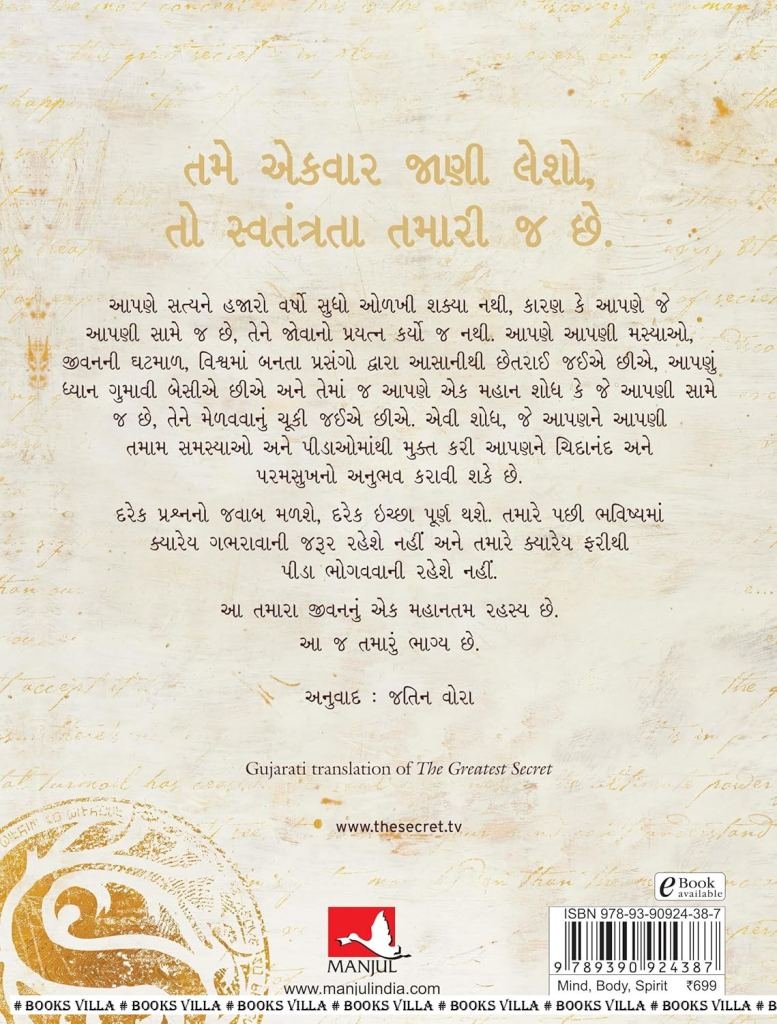 તમે એકવાર જાણી લેશો,
તો સ્વતંત્રતા તમારી જ છે.
આપણે સત્યને હજારો વર્ષો સુધો ઓળખી શક્યા નથી, કારણ કે આપણે જે
આપણી સામે જ છે, તેને જોવાનો પ્રયત્ન કર્યો જ નથી. આપણે આપણી મસ્યાઓ,
જીવનની ઘટમાળ, વિશ્વમાં બનતા પ્રસંગો દ્વારા આસાનીથી છેતરાઈ જઈએ છીએ, આપણું
ધ્યાન ગુમાવી બેસીએ છીએ અને તેમાં જ આપણે એક મહાન શોધ કે જે આપણી સામે
જ છે, તેને મેળવવાનું ચૂકી જઈએ છીએ. એવી શોધ, જે આપણને આપણી
તમામ સમસ્યાઓ અને પીડાઓમાંથી મુક્ત કરી આપણને ચિદાનંદ અને
પરમસુખનો અનુભવ કરાવી શકે છે.
દરેક પ્રશ્નનો જવાબ મળશે, દરેક ઇચ્છા પૂર્ણ થશે. તમારે પછી ભવિષ્યમાં
ક્યારેય ગભરાવાની જરૂર રહેશે નહીં અને તમારે ક્યારેય ફરીથી
પીડા ભોગવવાની રહેશે નહીં.
આ તમારા જીવનનું એક મહાનતમ રહસ્ય છે.
આ જ તમારું ભાગ્ય છે.
અનુવાદ : જતિન વોરા
Gujarati translation of The Greatest Secret
www.thesecret.tv
e Book
available
ISBN 978-93-90924-38-7
9 789390 924387
Mind, Body, Spirit ₹699
MANJUL
www.manjulindia.com
# BOOKS VILLA # BOOKS VILLA # BOOKS VILLA # BOOKS VILLA # BOOKS VILLA # BOOKS VILLA # BOOKS VILLA #